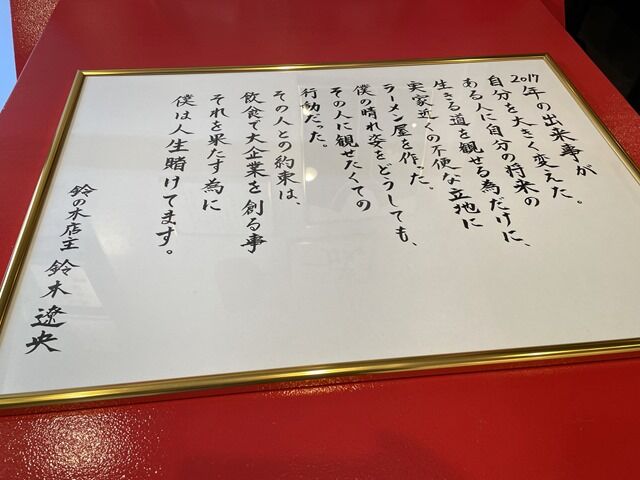 2017年の出来事が
自分を大きく変えた。
ある人に自分の将来の
生きる道を観せる為だけに、
実家近くの不便な立地に
ラーメン屋を作った。
僕の晴れ姿をどうしても、
その人に観せたくての
行動だった。
その人との約束は、
飲食で大企業を創る事
それを果たす為に
僕は人生賭けてます。
鈴の木店主 鈴木 遼央